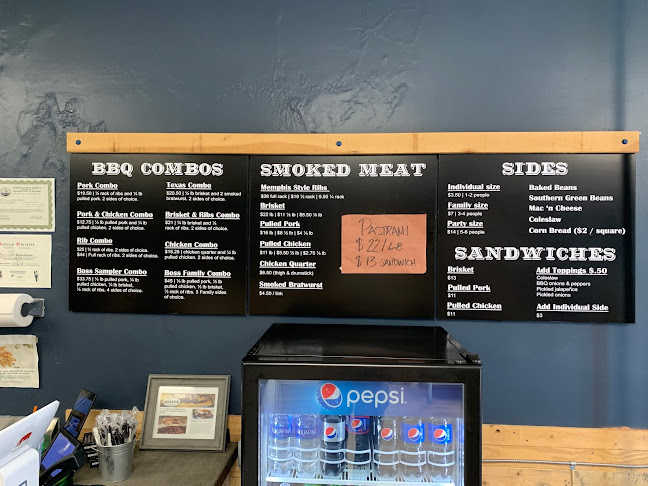 BBQ COMBOS
Pork Combo
$19.50 | ¼ rack of ribs and ¼ lb
pulled pork. 2 sides of choice.
Pork & Chicken Combo
$12.75 | ¼ lb pulled pork and ¼ lb
pulled chicken. 2 sides of choice.
Rib Combo
$25 | ½ rack of ribs. 2 sides of choice.
$44 | Full rack of ribs. 2 sides of choice.
Boss Sampler Combo
pulled chicken, ¼ lb brisket,
¼ rack of ribs. 4 sides of choice.
Texas Combo
$20.50 | ½ lb brisket and 2 smoked
bratwurst. 2 sides of choice.
Brisket & Ribs Combo
$21 | ¼ lb brisket and ¼
rack of ribs. 2 sides of choice.
Chicken Combo
$15.25 | chicken quarter and ¼ lb
pulled chicken. 2 sides of choice.
Boss Family Combo
$49 | ½ lb pulled pork, ½ lb
pulled chicken, ½ lb brisket,
½ rack of ribs. 3 Family sides
of choice.
SMOKED MEAT
Memphis Style Ribs
$38 full rack | $19 ½ rack | 9.50 ¼ rack
Brisket
$22 lb | $11 ½ lb | $5.50 ¼ lb
Pulled Pork
$16 lb | $8 ½ lb | $4 ¼ lb
Pulled Chicken
$11 lb | $5.50 ½ lb | $2.75 ¼ lb
Chicken Quarter
$6.60 (thigh & drumstick)
Smoked Bratwurst
$4.50 / link
PASTRAMI
$22/LB
$13 SANDWICH
SIDES
Individual size
$3.50 | 1-2 people
Family size
$7 | 3-4 people
Party size
$14 | 5-6 people
Baked Beans
Southern Green Beans
Mac 'n Cheese
Coleslaw
Corn Bread ($2 / square)
SANDWICHES
Brisket
$13
Pulled Pork
$11
Pulled Chicken
$11
Add Toppings $.50
Coleslaw
BBQ onions & peppers
Pickled jalapeños
Pickled onions
Add Individual Side
$3
pepsi